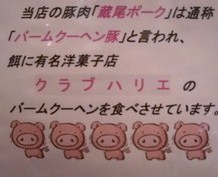 当店の豚肉「蔵尾ポーク」は通称
「バームクーヘン豚」と言われ、
餌に有名洋菓子店
クラブハリエ の
バームクーヘンを食べさせています。